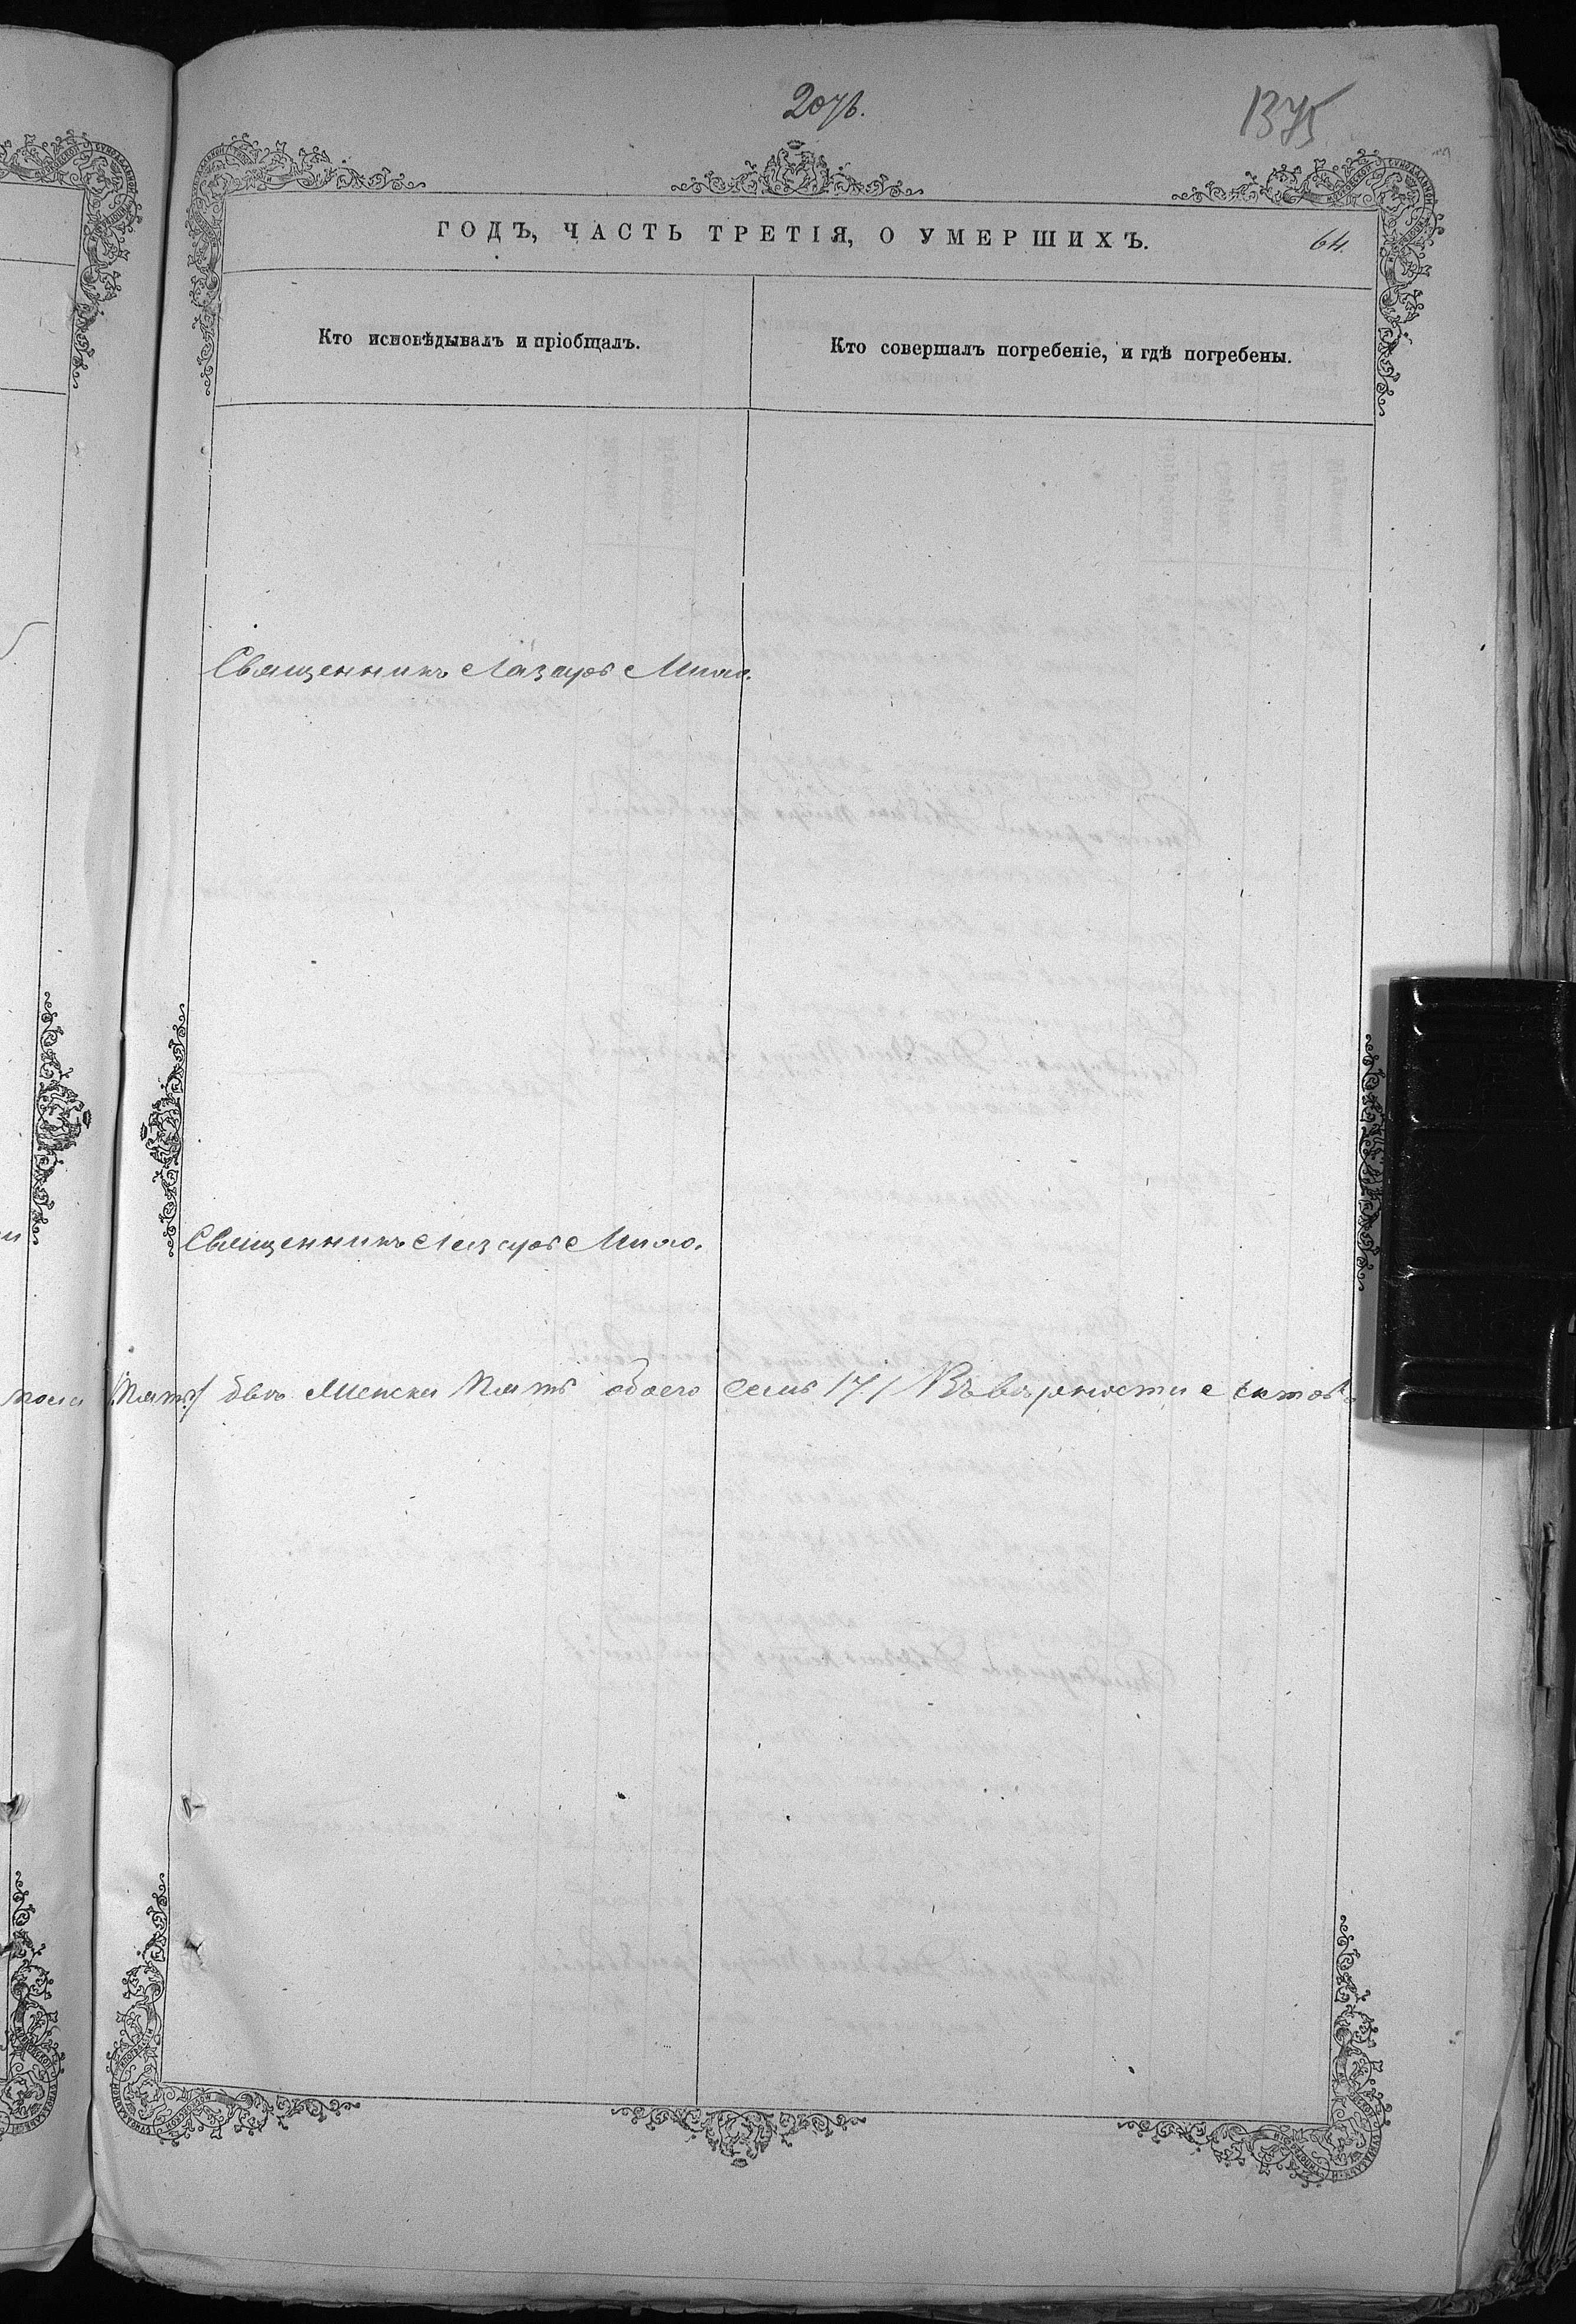 207б.
1375
ГОДЪ, ЧАСТЬ ТРЕТІЯ, О УМЕРШИХЪ.
64.
Кто исповѣдывалъ и пріобщалъ.
Кто совершалъ погребеніе, и гдѣ погребены.
Священникъ Лазарь
Священникъ Лазарь
пола пять/ двѣ женска пять обоего семь /7./ Въ вѣрности